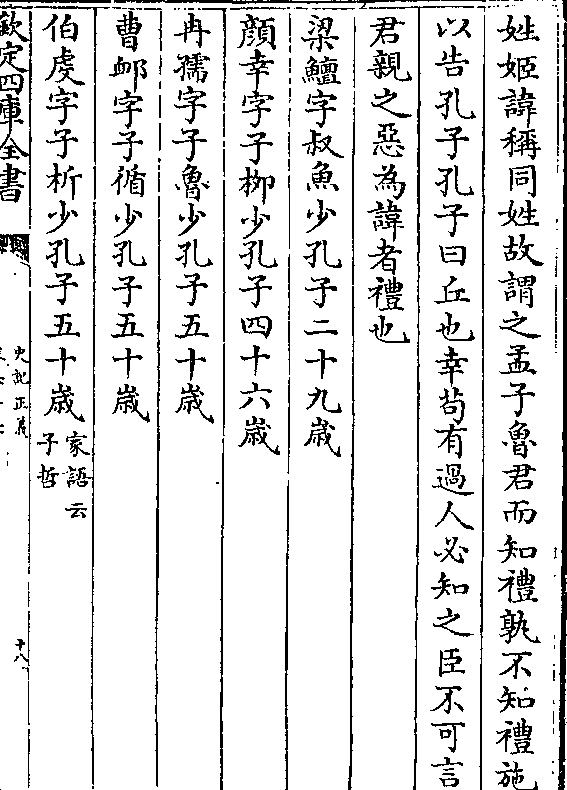 姓姬諱稱同姓故謂之孟子魯君而知禮孰不知禮施
以告孔子孔子曰丘也幸苟有過人必知之臣不可言
君親之惡為諱者禮也
梁鱣字叔魚少孔子二十九歲
顔幸字子柳少孔子四十六歲
冉孺字子魯少孔子五十歲
曹䘏字子循少孔子五十歲
伯虔字子析少孔子五十歲家語云子哲
欽定四庫全書
史記正義
十八